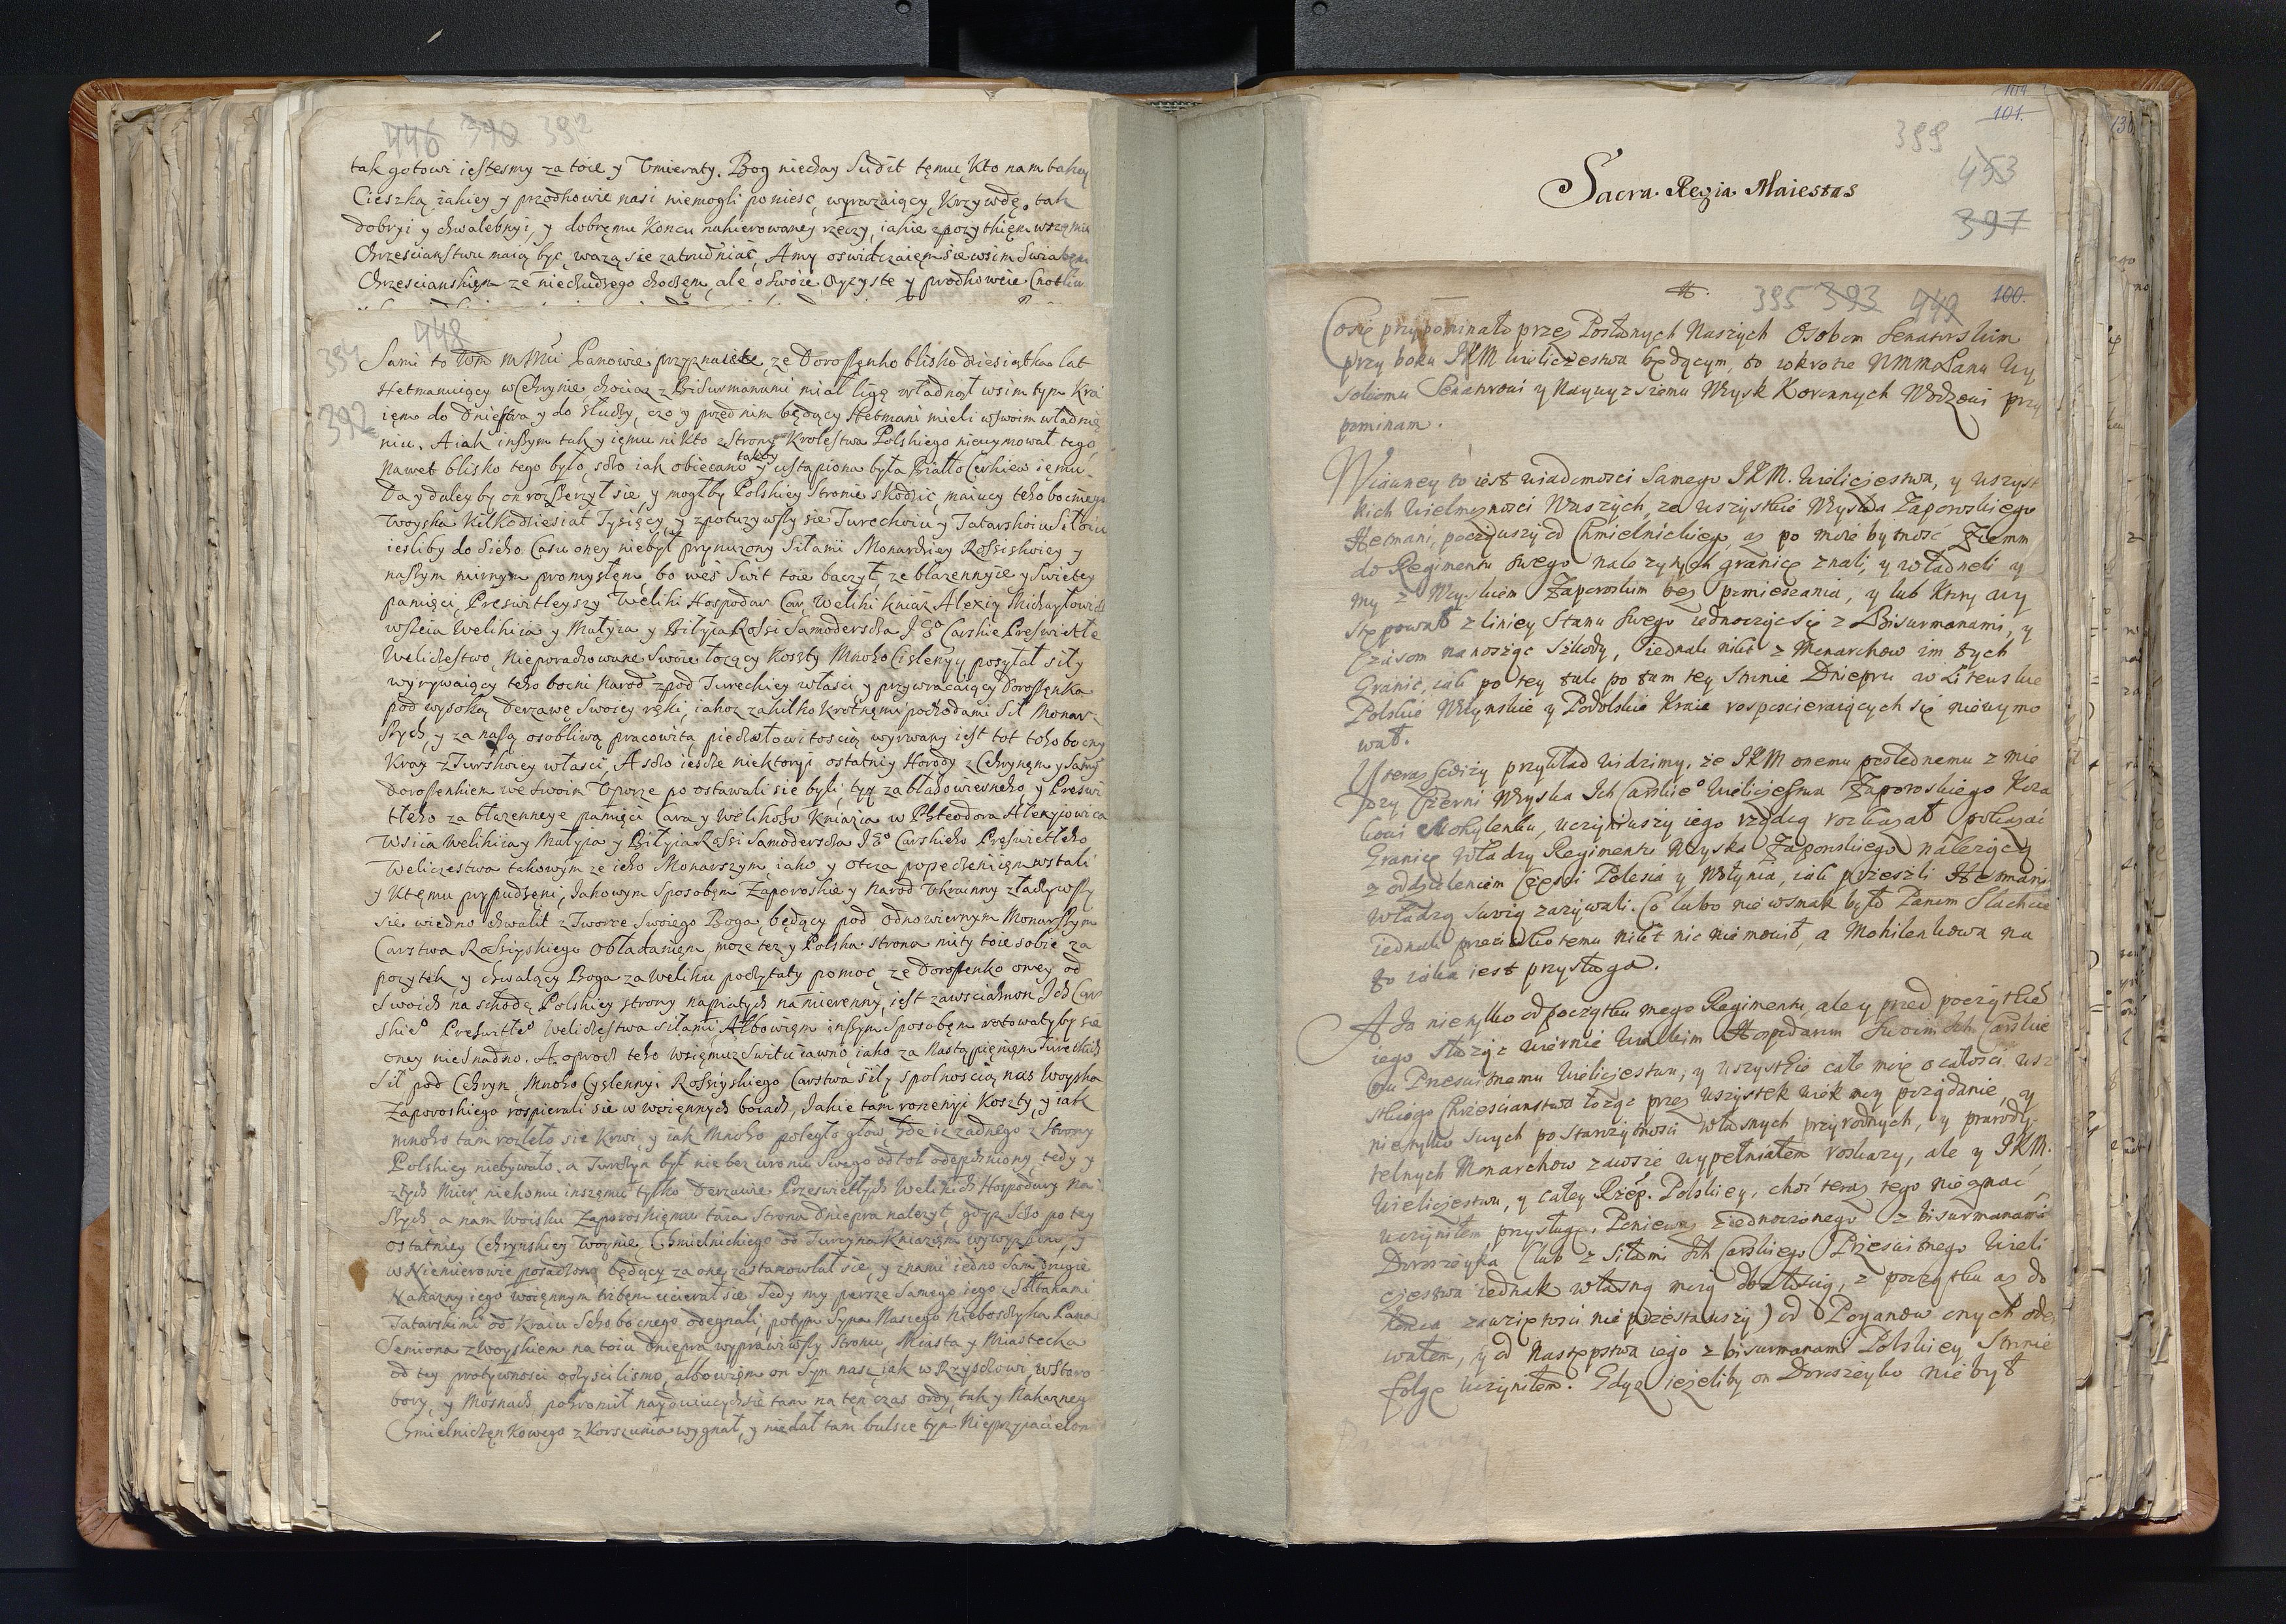 446 390 392
tak gotowi iestesmy za toie y Umieraty. Bog niechay Sudit temu kto nam takuy
Cieszką, iakiey y przodkowie nasi niemogli poniesc, wyrzaiący Krzywdę, tak
dobryi y chwalebnyi, y dobremu Koncu nakierowaney rzeczy, iakie z pozytkiem wszemu
Chrzescianstwu maią byc, wazą sie zatrudniac, A my oswidczaiem sie wsim Swiatem
Chrzescianskiem ze niechudzego chochem, ale o Swoie Oyczyste y prodkowcie Cnotliw
448
394
392
Sami to WM MMci Panowie przyznaiete, ze Doroszenko blisko dziesiątka lat
Hetmaniący w Cehrynie, chociaz z Bisurmanami miał ligę władnoł wsim tym Kra
iem do Dniestra y do Słuczy, czo y przed nim będący Hetmani mieli w swoim władnie
niu. A iak inszym tak y iemu nikto z Strony Krolestwa Polskiego nieuymował tego,
Nawet blisko tego było, szo iak obiecano takoy y ustąpiona była Białło Cerkiew iemu
Da y daley by on rozszerzył się, y mogłby Polskiey Stronie skodzic, maiący tehobocznego
woyska Kilkodziesiat Tysięcy, y zpotuzywszy sie Tureckoiu y Tatarskoiu Siłoiu
iesliby do Sieho Casu oney niebył prynuzony Siłami Monarchiey Rossiskoiey y
naszym mirnym promysłem, bo wes Swit toie baczył, ze błazennyie y Swietey
pamięci, Preswitleyszy Weliki Hospodar Car, Weliki Kniaz Alexiy Michayłowicz
wseia Welikiia y Małyia y Biłyia Rossi Samoderscha J Eo Carskie Preswitłe
Weliczestwo, Nieporachowane Swoie łozący Koszty Mnoho Cisłenyy posyłał siły
wyrywaiący teho bocni Narod zpod Tureckiey własci y przywracaiący Doroszenka
pod wysoką Derzawę Swoiey ręki, iakoz zakilko krotnemi pochodami Sił Monar-
szych, y za naszą osobliwą pracowitą piedzołowitoscią wyrwany iest tot toho bocny
Kray z Turskoiey własci, A szo iescze niektoryi ostatniy Horody z Cehrynem y Samym
Doroszenkiem we Swoim Uporze po ostawali sie byli, tyy za bładowiernoho, y Preswi
tłeho za błazenneye pamięci Cara y Welikoho Kniazia w P. Theodora Alexiowica
Wsiia Welikiia y Małyia y Biłyia Rossi Samoderscha J Eo Carskieho Preswietłeho
Weliczestwa takowym ze ieho Monarszym, iako y otcza popeczeniiem wstali
y Ktemu prypudzeni, Jakowym Sposobem Zaporoskie y Narod Ukrainny złaczywszy
sie wiedno chwalit z Tworce Swoiego Boga, będący pod odnowiernym Monarszym
Carstwa Rossiyskiego Obładaniem, moze tez y Polska strona mity toie sobie za
pozytek y chwalący Boga za weliku poczytaty pomoc, ze Doroszenko owey od
Swoich na schodę Polskiey strony napiatych namierenny, iest zawsciahnon Ich Car
skieo Preswitłeo Weliczestwa siłami, Albowiem inszym Sposobem rotowaty by sie
oney nieSnadno. A oproch teho wsiemuz Switu iawno iako za Nastąpieniem Tureckich
Sił pod Cehryn, Mnoho Cyslennyi Rossiyskiego Carstwa siły spolnoscią nas Woyska
Zaporoskiego rospierali sie w woiennych boiach, Jakie tam rozenyi Koszty, y iak
mnoho tam rozleło sie Krwi, y iak Mnoho poległo głow, hde iz zadnego z Strony
Polskiey niebywało, a Turczyn był nie bez uronu Swego odtoł odepchniony, tedy y
złych Mier nikomu inszemu tylko Derzawie Przeswietłych Welikich Hospodary Na-
szych, a nam Woisku Zaporoskiemu taia Strona Dniepra nalezyt, gdyz Szo po tey
ostatniey Cehrynskiey Woynie, Chmielnickiego od Turczyna Kniazem wywyzszonu, y
w Niemierowie posadzono będący za oney zastanowlał sie, y znami iedno Sam drugie
Nakazny iego woiennym trzbem ucierał sie. Tedy my persze Samego iego z Sołtanami
Tatarskimi od Kraiu Seho bocnego odegnali, potym Syna Naszego Nieboszyka Pana
Semiona z Woyskiem na toiu Dniepra wyprawiwszy Stronu, Miasta y Miastecka
od tey protywnosci oczyscilismo, albowiem on Syn nasz iak w Rzysczowi, w Staro-
bory, y Mosnach, pohromił nayduiuczychsie tam na ten czas ordy, tak y Nakazney
Chmielnickęnkowego z Korszunia wygnał, y niedał tam bulsce tym Nieprzyiacielom
104
101.
399
453
397
Sacra Regia Maiestas
395 393 449 100.
Cosię przypominało przez Posłanych Naszych Osobom Senatorskim
przy boku JKM Wieliczestwa będącym, to wkrotce WMM Panu Wy
sokiemu Senatorowi y Naywyzszemu Woysk Koronnych Wodzowi przy
pominam.
Wiawney to iest wiadomosci Samego JKM. Wieliczestwa, y wszyst
kich Wielmoznosci Waszych, ze wszystkie Woyska Zaporoskiego
Hetmani, począwszy od Chmielnickiego, az po moie bytnosc Ziemm
do Regimentu swego nalezących granicę znali, y władneli y
my z Woyskiem Zaporoskim bez pomieszania, y lub Ktory wy
stępował z liniey Stanu swego iednocząc się z Bisurmanami, y
Czasom nanosząc szkody, iednak nikt z Monarchow im tych
Granic, iak po tey tak po tam tey Stronie Dniepru w Litewskie
Polskie Wołynskie y Podolskie Kraie rosposcieraiących się nieuymo
wał.
U teraz swiezy przykład widzimy, ze JKM onemu poslednemu z mie
dzy Czerni Woyska Ich Carskieo Wieliczestwa Zaporoskiego Koza
kowi Mohylenku, uczyniwszy iego rządcą rozkazał pokazać
Granicę władzy Regimentu Woyska Zaporoskiego nalezącą
z oddzieleniem Części Polesia y Wołynia, iak przeszli Hetmani
władzą swoią zazywali. Co lubo niewsmak było Panom Slachcie
iednak przeciwko temu nikt nic niemowił, a Mohilenkowa na
to iaka iest przysługa.
A Ja nietylko od początku mego Regimentu, ale y przed początkiem
iego słuzyc wiernie Wielkim Hospodarom Swoim Ich Carskie
mu Przeswitnemu Wieliczestwu, y wszystkie całe moie o całosci wsz
stkiego Chrzescianstwa łozyc przez wszystek wiek moy poządanie, y
nietylko swych po starzytnosci własnych przyrodnych, y prawdzi-
telnych Monarchow zawsze wypełniałem roskazy, ale y JKM.
Wieliczestwu, y całey Rzép. Polskiey, choc teraz tego nieznać
uczyniłem przysługę. Poniewaz ziednoczonego z bisurmanami
Doroszeyka (lub z Siłami Ich Carskiego Przeswitnego Wieli
czestwa iednak własną moią dbałoscią, z początku az do
konca zawziętosci nieprzestawszy) od Poganow onych ode
wałem, y od Następstwa iego z bisurmanami Polskiey Stronie
folgę uczyniłem. Gdyz iezeliby on Doroszeyko niebył